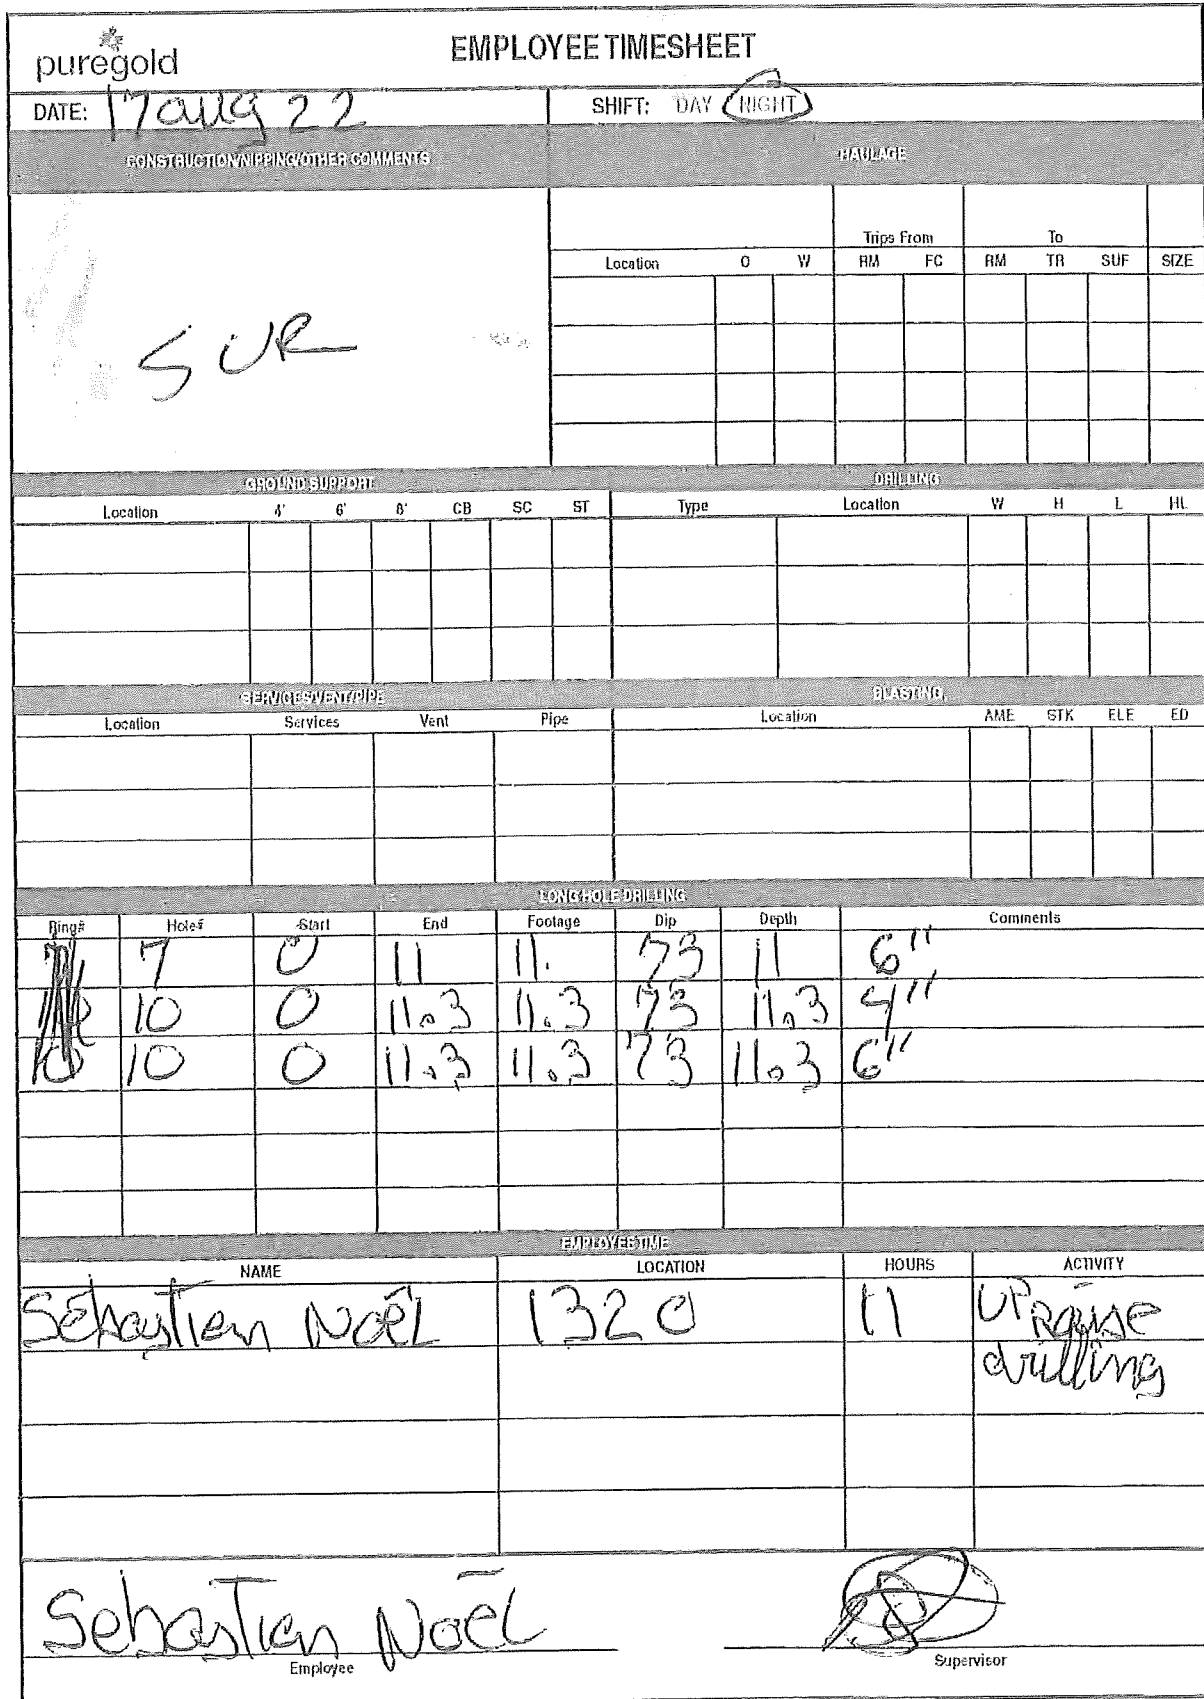 puregold
EMPLOYEE TIMESHEET
DATE: 17 aug 22
SHIFT: DAY NIGHT
CONSTRUCTION/NIPPING/OTHER COMMENTS
HAULAGE
Trips From To
Location O W RM FC RM TR SUF SIZE
SUR
GROUND SUPPORT
DRILLING
Location 4' 6' 8' CB SC ST
Type Location W H L HL
SERVICES/VENT/PIPE
BLASTING
Location Services Vent Pipe
Location AME STK ELE ED
LONG HOLE DRILLING
Ring# Hole# Start End Footage Dip Depth Comments
7 0 11 11. 73 11 6"
10 0 11.3 11.3 73 11.3 4"
10 0 11.3 11.3 73 11.3 6"
EMPLOYEE TIME
NAME LOCATION HOURS ACTIVITY
Sébastien Noël 1320 11 UP Raise
drilling
Sebastien Noël
Employee
Supervisor